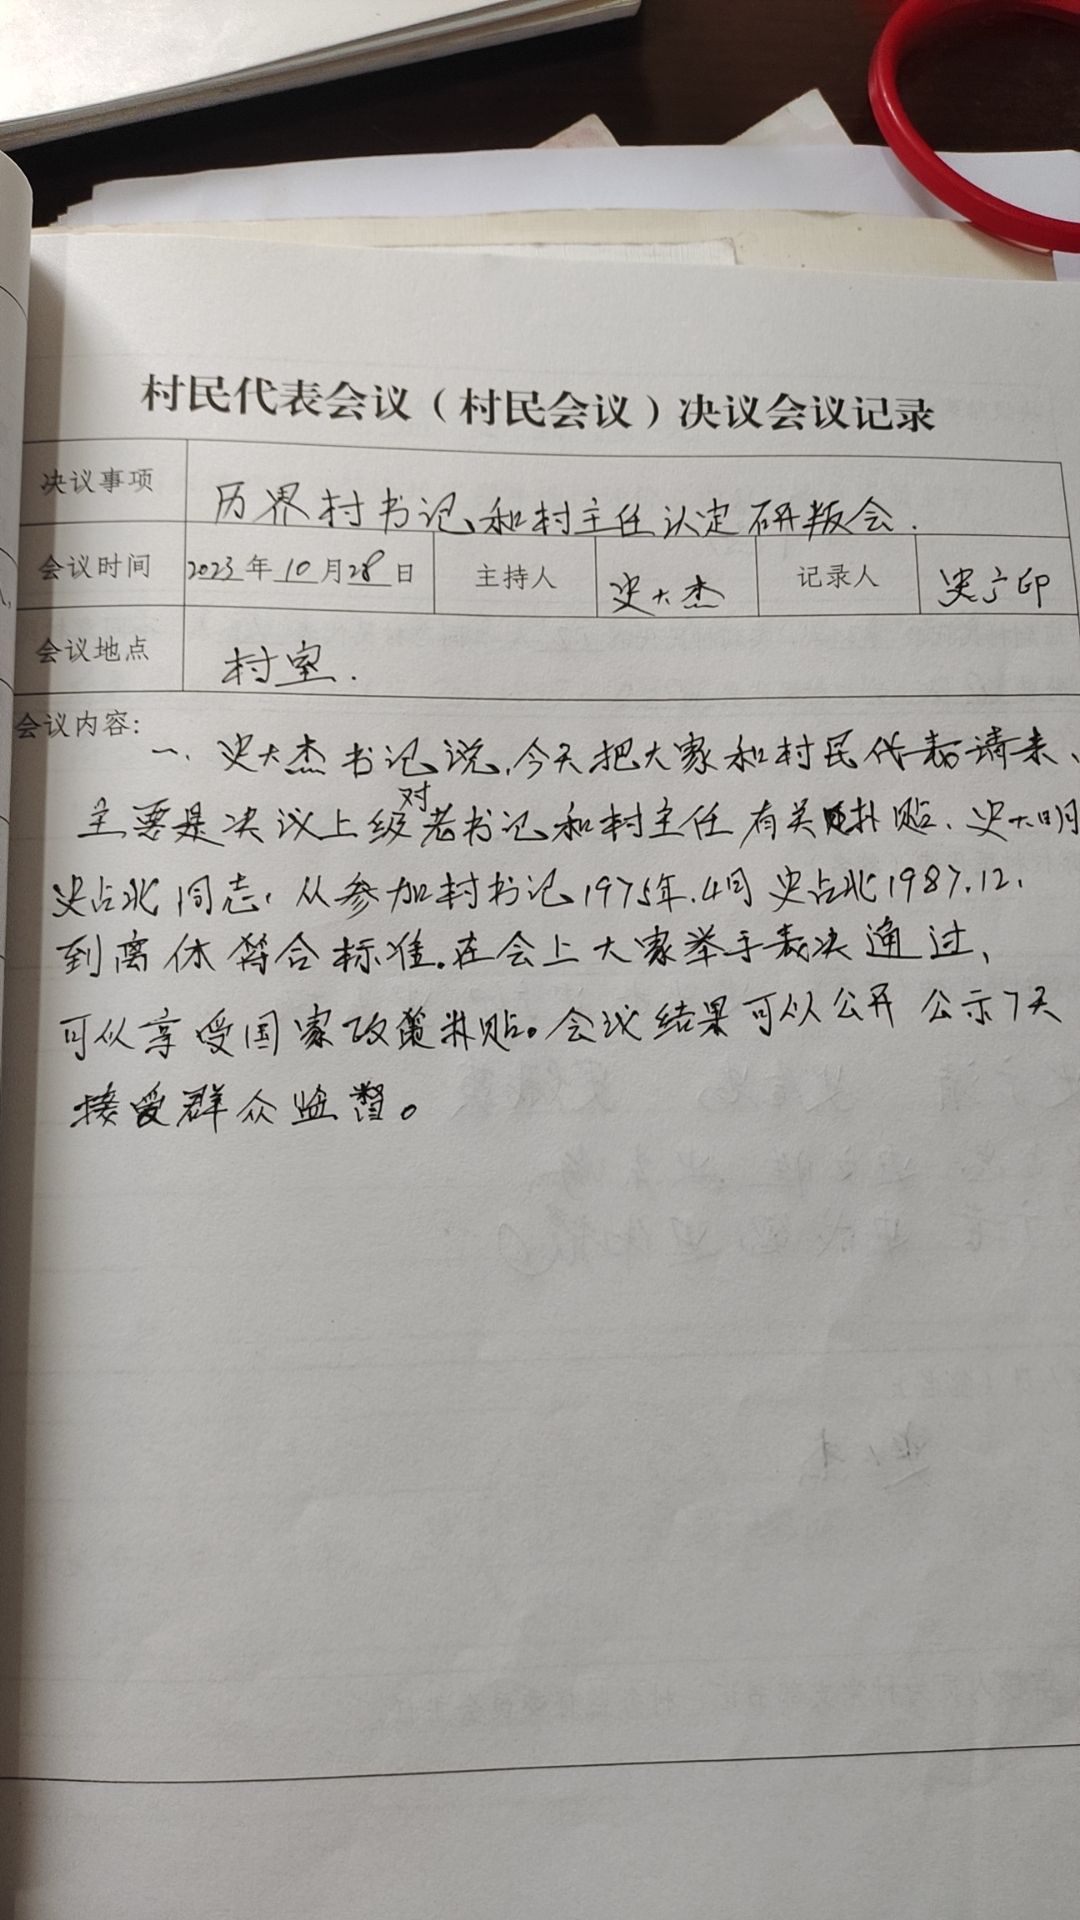 村民代表会议（村民会议）决议会议记录
决议事项 历界村书记和村主任认定研叛会.
会议时间 2023年10月28日 主持人 史大杰 记录人 史广印
会议地点 村室.
会议内容:
一、史大杰书记说,今天把大家和村民代表请来、
主要是决议上级对老书记和村主任有关补贴、史大明
史占北同志,从参加村书记1975年.4月史占北1987.12,
到离休符合标准.在会上大家举手表决通过,
可从享受国家政策补贴。会议结果可以公开公示7天
接受群众监督。